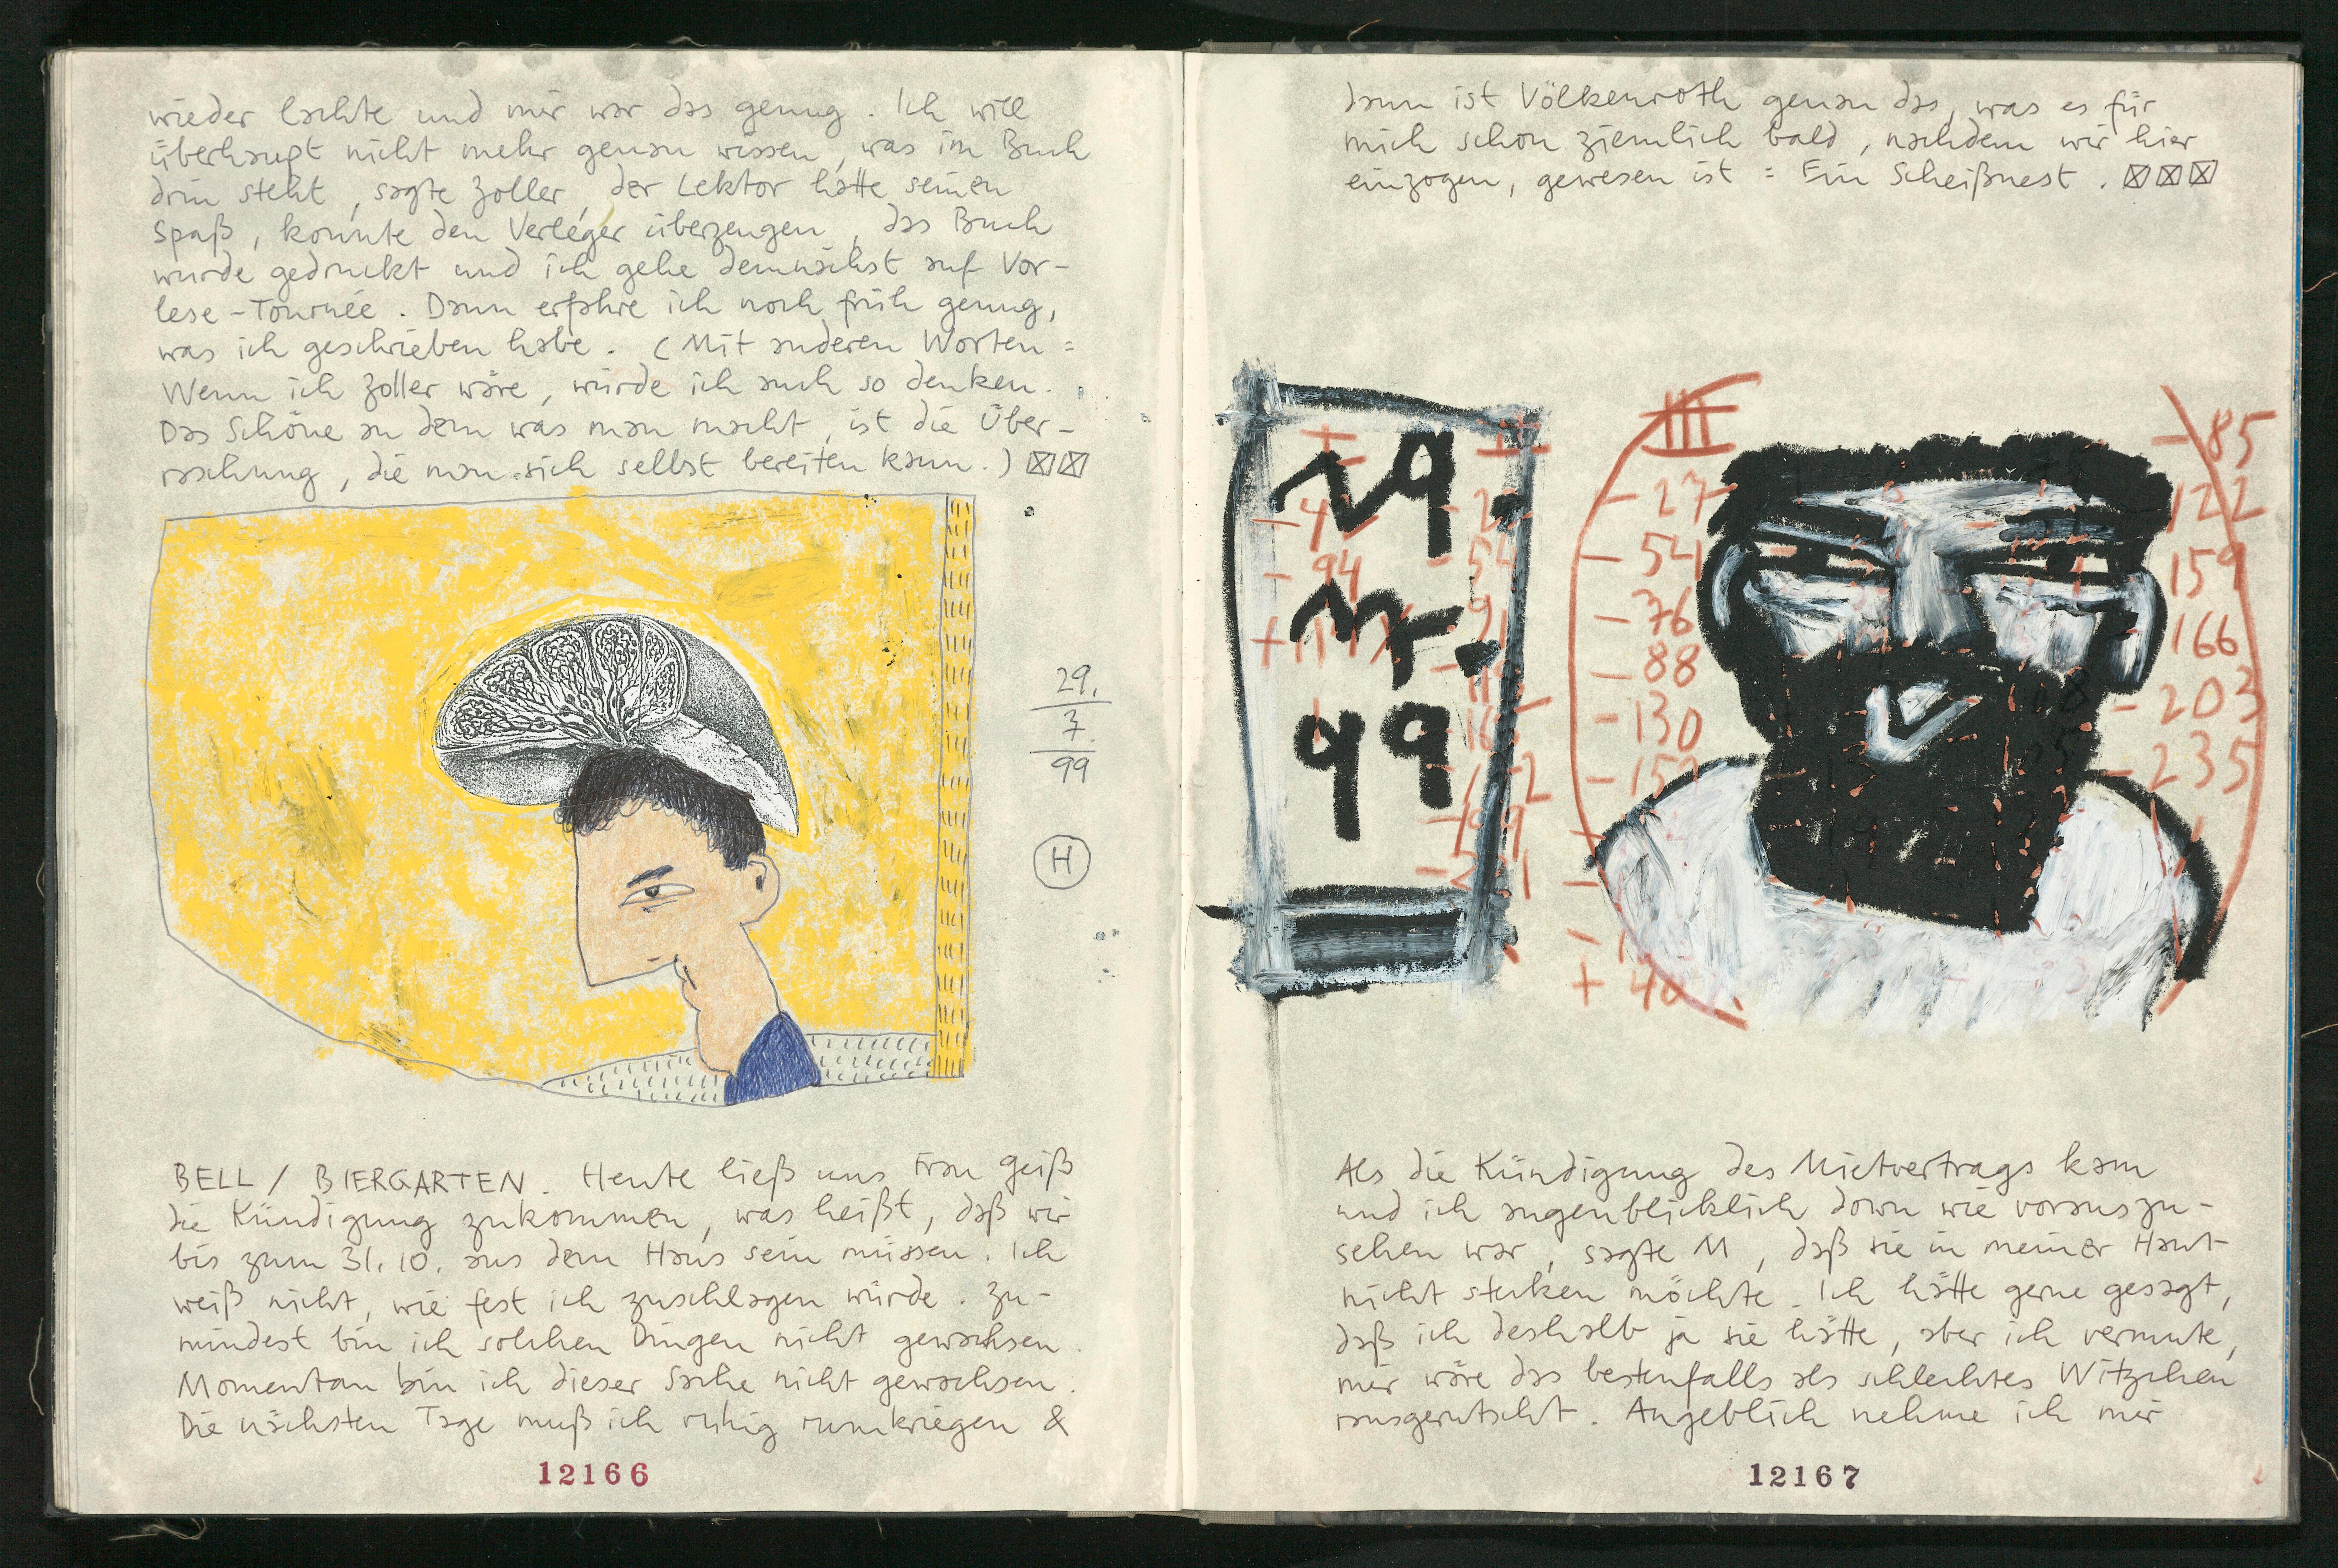 wieder lachte und mir war das genug. Ich will
überhaupt nicht mehr genau wissen, was im Buch
drin steht, sagte Zoller, der Lektor hatte seinen
Spaß, konnte den Verleger überzeugen, das Buch
wurde gedruckt und ich gehe demnächst auf Vor-
lese-Tournée. Dann erfahre ich noch früh genug,
was ich geschrieben habe. (Mit anderen Worten =
Wenn ich Zoller wäre, würde ich auch so denken.
Das Schöne an dem was man macht, ist die Über-
raschung, die man sich selbst bereiten kann.) ☒☒
29.
7.
99
H
BELL / BIERGARTEN. Heute ließ uns Frau Geiß
die Kündigung zukommen, was heißt, daß wir
bis zum 31. 10. aus dem Haus sein müssen. Ich
weiß nicht, wie fest ich zuschlagen würde. Zu-
mindest bin ich solchen Dingen nicht gewachsen.
Momentan bin ich dieser Sache nicht gewachsen.
Die nächsten Tage muß ich ruhig rumkriegen &
12166
dann ist Völkenroth genau das, was es für
mich schon ziemlich bald, nachdem wir hier
einzogen, gewesen ist = Ein Scheißnest. ☒☒☒
29.
7.
99
I
II
III
-94
-27
-54
-76
-88
-130
-85
-122
159
166
-203
-235
Als die Kündigung des Mietvertrags kam
und ich augenblicklich down wie vorauszu-
sehen war, sagte M, daß sie in meiner Haut
nicht stecken möchte. Ich hätte gerne gesagt,
daß ich deshalb ja sie hätte, aber ich vermute,
mir wäre das bestenfalls als schlechtes Witzchen
rausgerutscht. Angeblich nehme ich mir
12167